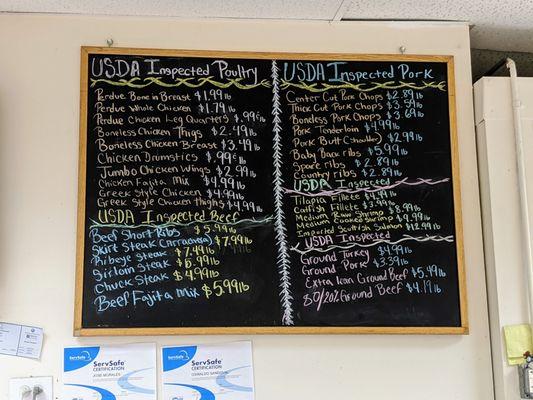 USDA Inspected Poultry
Perdue Bone in Breast $1.99lb
Perdue Whole Chicken $1.79lb
Perdue Chicken Leg Quarters $.99¢lb
Boneless Chicken Thigs $2.49lb
Boneless Chicken Breast $3.49lb
Chicken Drumstics $.99¢lb
Jumbo Chicken Wings $2.99lb
Chicken Fajita Mix $4.99lb
Greek Style Chicken $4.99lb
Greek Style Chicken Thighs $4.99lb
USDA Inspected Beef
Beef Short Ribs $5.99lb
Skirt Steak (Carraanda) $7.99lb
Ribeye Steak $7.49lb
Sirloin Steak $5.99lb
Chuck Steak $4.99lb
Beef Fajita Mix $5.99lb
USDA Inspected Pork
Center Cut Pork Chops $2.89lb
Thick Cut Pork Chops $3.59lb
Boneless Pork Chops $3.69lb
Pork Tenderloin $4.99lb
Pork Butt (shoulder) $2.99lb
Baby Back ribs $5.99lb
Spare ribs $2.89lb
Country ribs $2.89lb
USDA Inspected
Tilapia Fillete $4.99lb
Catfish Fillete $3.99lb
Medium Raw Shrimp $8.99lb
Medium Cooked Shrimp $9.99lb
Imported Scottish Salmon $12.99lb
USDA Inspected
Ground Turkey $4.99lb
Ground Pork $3.39lb
Extra lean Ground Beef $5.49lb
80/20 Ground Beef $4.19lb
ServSafe
CERTIFICATION
ServSafe
CERTIFICATION